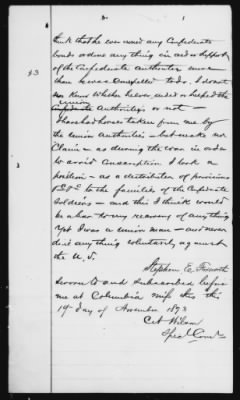 think that he ever owned any Confederate
bonds or done any thing in aid or support
of the Confederate Authorities more
than he was Compelled to do. I do not
43
now Know whether he ever aided or helped the
union
Confederate Authorities or not —
I have had horses taken from me by
the union Authorities – but make no
Claim – as during the war in order
to avoid Conscription I took a
position – as a distributer of provisions
to the families of the Confederate
Soldiers – and this I think would
be a bar to my recovery of any thing
Yet I was a union man – and never
did any thing voluntarily against
the U.S.
Stephen E.
Sworn to and subscribed before
me at Columbia Miss this the
19th day of November 1873